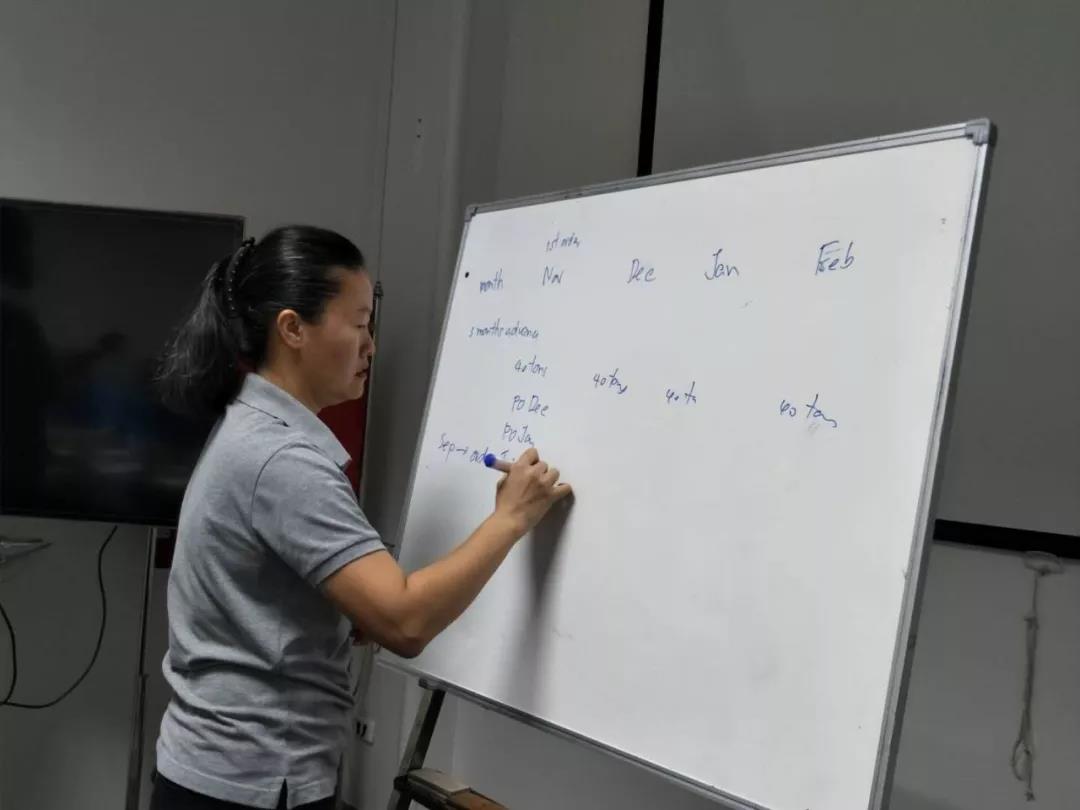 1st order
month Nov Dec Jan Feb
3 months advance
40 tons 40 tons 40 to 40 tons
PO Dec
PO Jan
Sep →